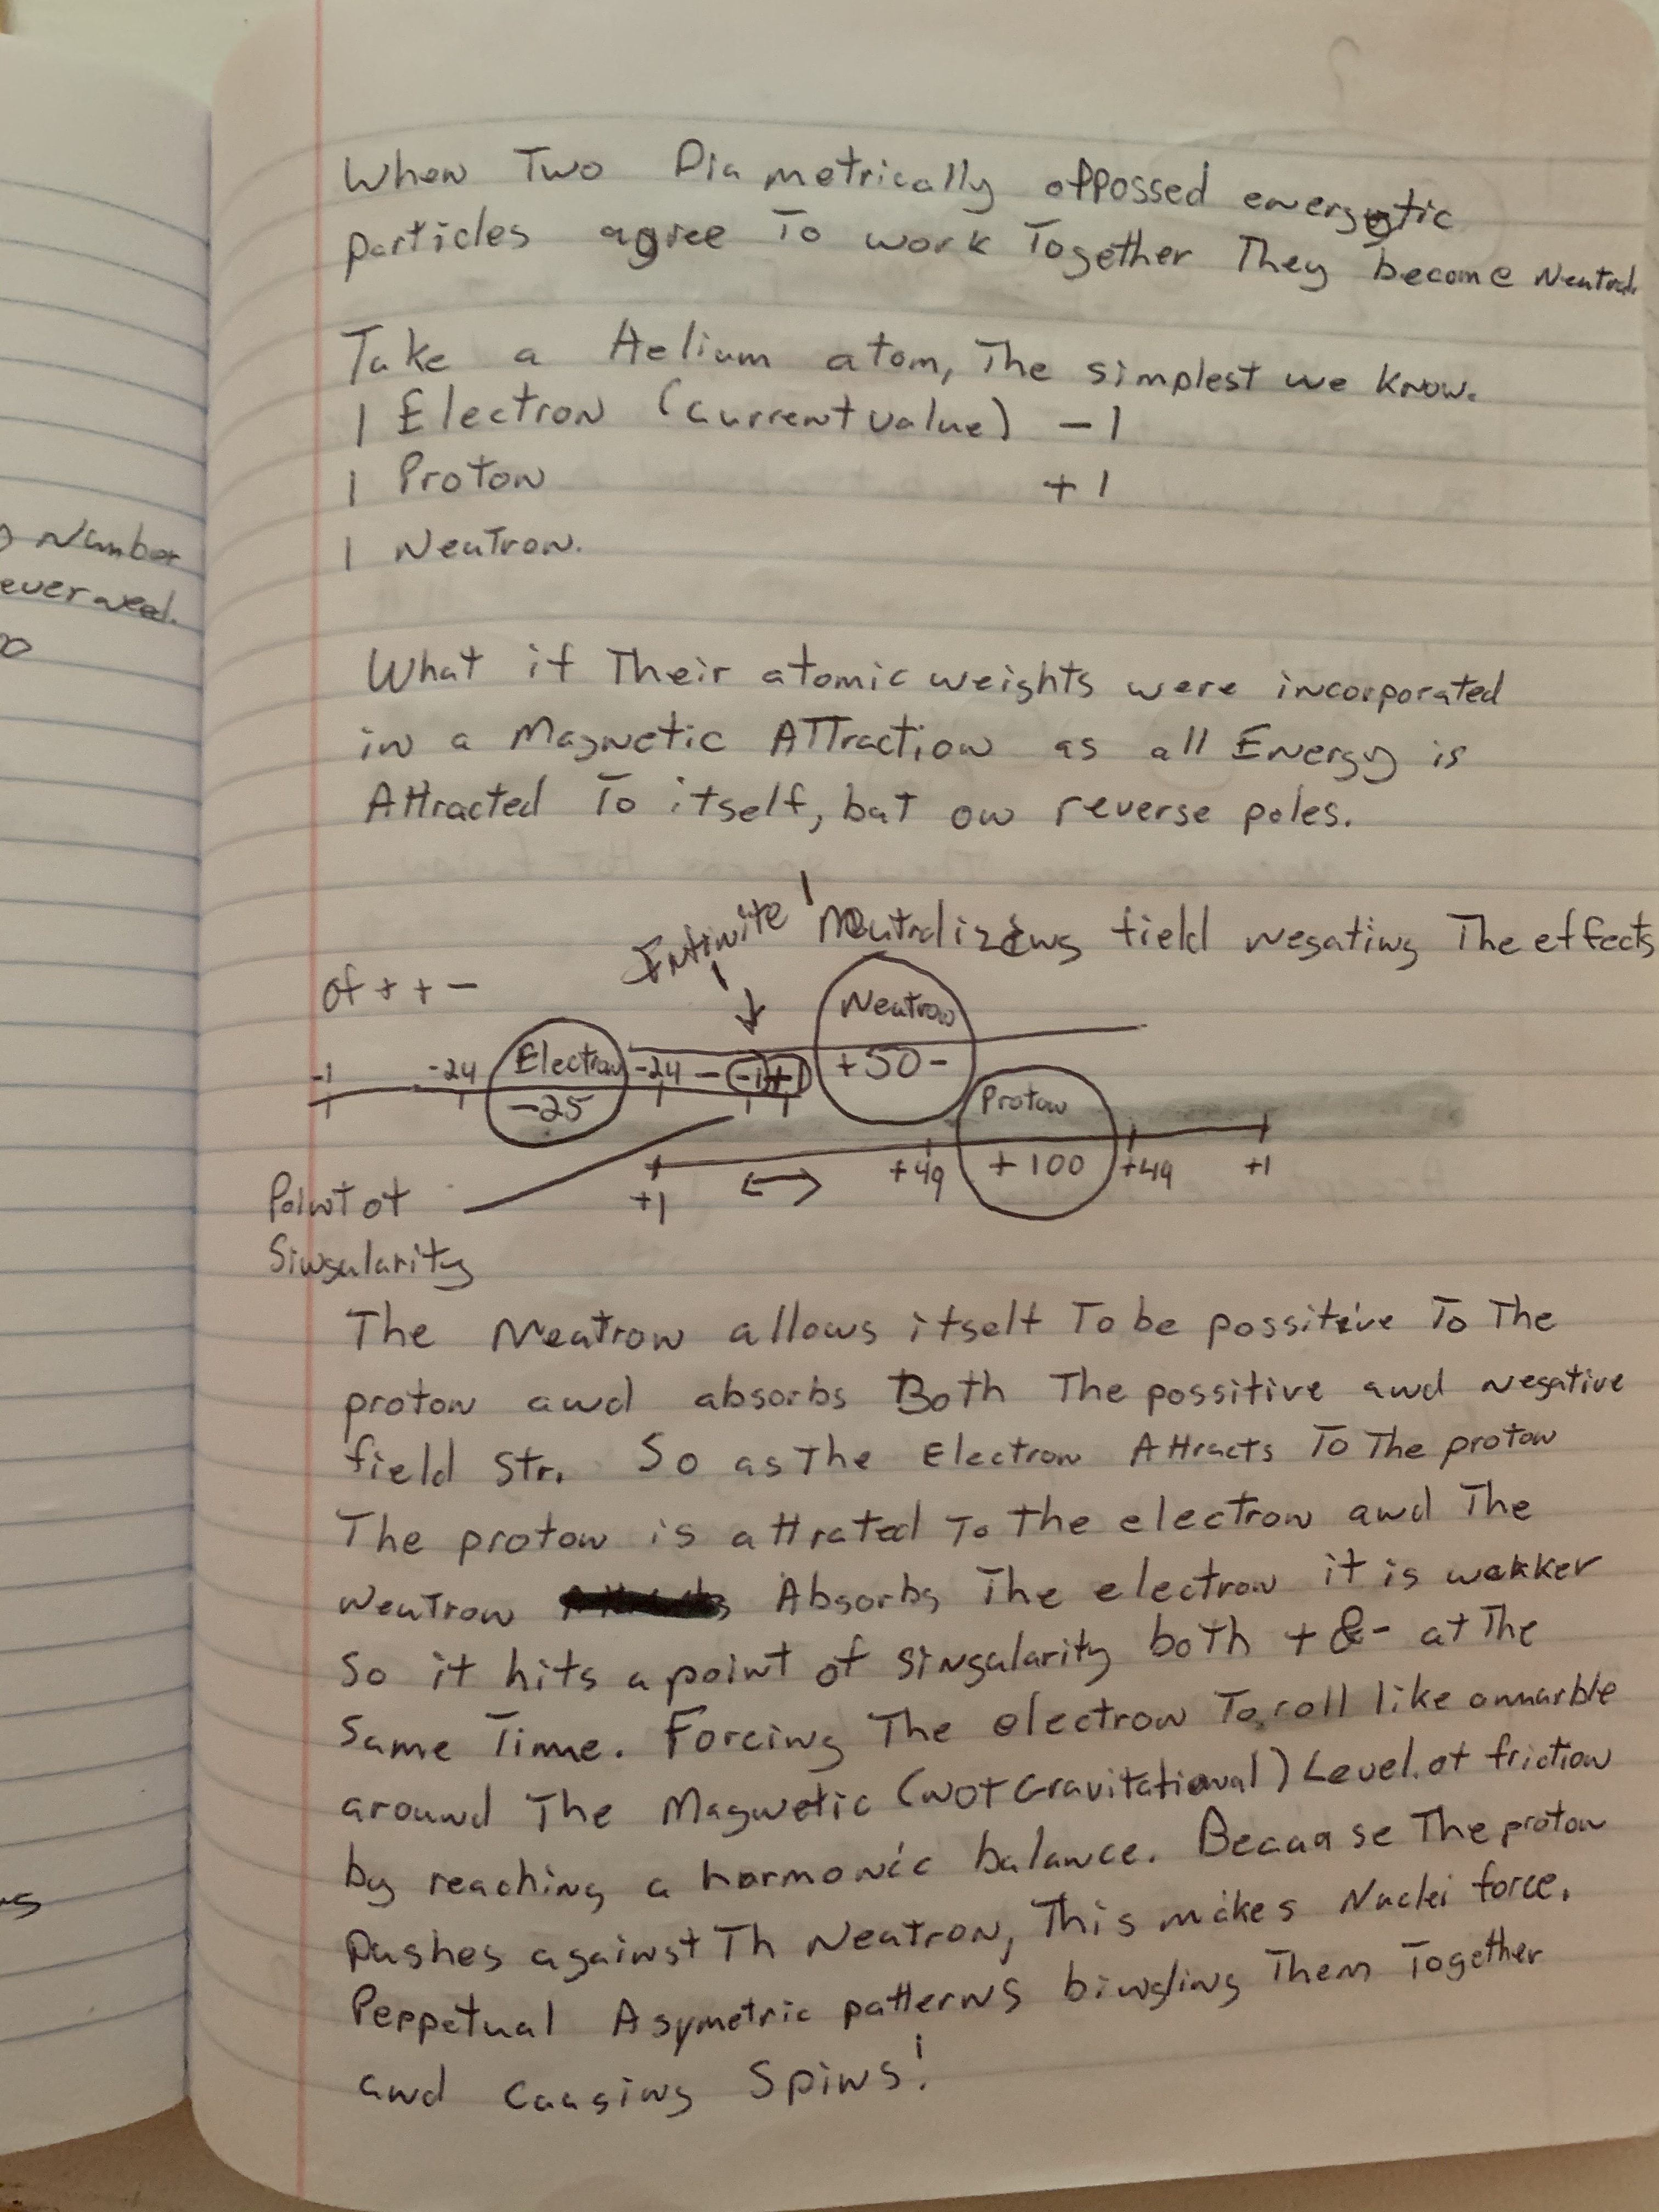 When Two Diametrically offossed energetic
particles agree To work Together They become Neutral.
Take a Helium atom, The simplest we know.
1 Electron (current value) -1
1 Proton +1
1 Neutron.
Number
What if Their atomic weights were incorporated
in a Magnetic ATTraction as all Energy is
Attracted To itself, but on reverse poles.
Infinite Neutralizing field negating The effects
of + + -
Neutron
+50-
-1 -24 Electron -24 - -1 +1
-25
Proton
+1 +49 +100 +49 +1
Point of
Singularity
The Neutron allows itself To be possitive To The
proton and absorbs Both The possitive and negative
field Str. So as The Electron Attracts To The proton
The proton is attrated To The electron and The
Neutron Absorbs The electron it is wekker
So it hits a point of Singularity both + & - at The
Same Time. Forcing The electron To roll like a marble
around The Magnetic (not Gravitational) Level of friction
by reaching a harmonic balance. Because The proton
pushes against Th Neutron, This makes Nuclei force.
Peppetual Asymetric patterns bingling Them Together
and Causing Spins!